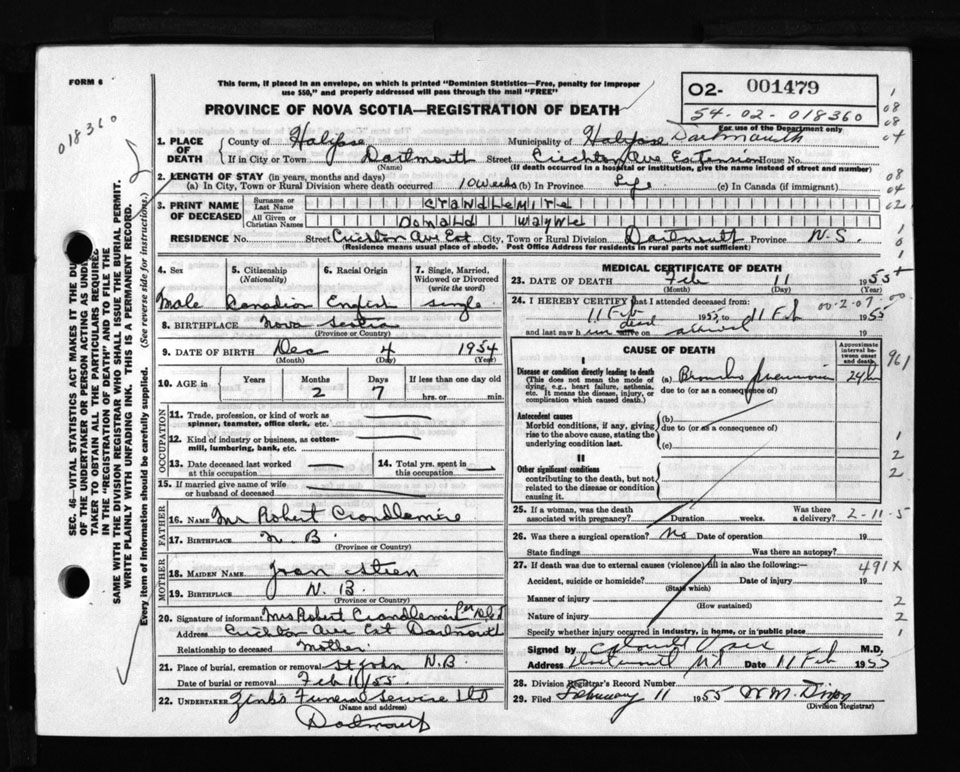 FORM 6
This form, if placed in an envelope, on which is printed "Dominion Statistics—Free, penalty for improper
use $50," and properly addressed will pass through the mail "FREE"
PROVINCE OF NOVA SCOTIA—REGISTRATION OF DEATH
O2- 001479
54-02-018360
For use of the Department only
018360
1. PLACE OF DEATH
County of Halifax Municipality of Halifax Dartmouth
If in City or Town Dartmouth Street Crichton Ave Extension House No.
(Name) (If death occurred in a hospital or institution, give the name instead of street and number)
2. LENGTH OF STAY (in years, months and days)
(a) In City, Town or Rural Division where death occurred 10 weeks (b) In Province Life (c) In Canada (if immigrant)
3. PRINT NAME OF DECEASED
Surname or Last Name Crandlemire
All Given or Christian Names Donald Wayne
RESIDENCE No. Street Crichton Ave Ext City, Town or Rural Division Dartmouth Province N.S.
(Residence means usual place of abode. Post Office Address for residents in rural parts not sufficient)
4. Sex 5. Citizenship (Nationality) 6. Racial Origin 7. Single, Married, Widowed or Divorced (write the word)
Male Canadian English single
8. BIRTHPLACE Nova Scotia
(Province or Country)
9. DATE OF BIRTH Dec 4 1954
(Month) (Day) (Year)
10. AGE in Years Months Days If less than one day old
2 7 hrs. or min.
OCCUPATION
11. Trade, profession, or kind of work as
spinner, teamster, office clerk, etc.
12. Kind of industry or business, as cotton-
mill, lumbering, bank, etc.
13. Date deceased last worked
at this occupation
14. Total yrs. spent in
this occupation
15. If married give name of wife
or husband of deceased
FATHER
16. NAME Mr Robert Crandlemire
17. BIRTHPLACE N. B
(Province or Country)
MOTHER
18. MAIDEN NAME Joan
19. BIRTHPLACE N. B.
(Province or Country)
20. Signature of informant Mrs Robert Crandlemire Per
Address Crichton Ave Ext Dartmouth
Relationship to deceased Mother
21. Place of burial, cremation or removal St John N.B
Date of burial or removal Feb 11/55
22. UNDERTAKER Zink's Funeral Service Ltd
(Name and address)
Dartmouth
MEDICAL CERTIFICATE OF DEATH
23. DATE OF DEATH Feb 11 1955
(Month) (Day) (Year)
24. I HEREBY CERTIFY that I attended deceased from:
11 Feb 1955 to 11 Feb 1955
00-2-07-00
and last saw h im dead alive on arrival 19
CAUSE OF DEATH
Approximate interval between onset and death
I
Disease or condition directly leading to death
(This does not mean the mode of
dying, e.g., heart failure, asthenia,
etc. It means the disease, injury, or
complication which caused death.)
(a) Broncho pneumonia 24 h
due to (or as a consequence of)
961
Antecedent causes
Morbid conditions, if any, giving
rise to the above cause, stating the
underlying condition last.
(b)
due to (or as a consequence of)
(c)
II
Other significant conditions
contributing to the death, but not
related to the disease or condition
causing it.
25. If a woman, was the death
associated with pregnancy? Duration weeks. Was there
a delivery? 2-11-5
26. Was there a surgical operation? No Date of operation 19
State findings Was there an autopsy?
27. If death was due to external causes (violence) fill in also the following:— 491X
Accident, suicide or homicide? Date of injury 19
(State which)
Manner of injury
(How sustained)
Nature of injury
Specify whether injury occurred in industry, in home, or in public place
Signed by M.D.
Address Dartmouth NS Date 11 Feb 1955
28. Division Registrar's Record Number
29. Filed February 11 1955 W M. Dixon
(Division Registrar)
SEC. 46—VITAL STATISTICS ACT MAKES IT THE DU
OF THE UNDERTAKER OR PERSON ACTING AS UND
TAKER TO OBTAIN ALL THE PARTICULARS REQUIRED
IN THE "REGISTRATION OF DEATH" AND TO FILE THE
SAME WITH THE DIVISION REGISTRAR WHO SHALL ISSUE THE BURIAL PERMIT.
WRITE PLAINLY WITH UNFADING INK. THIS IS A PERMANENT RECORD.
Every item of information should be carefully supplied. (See reverse side for instructions.)